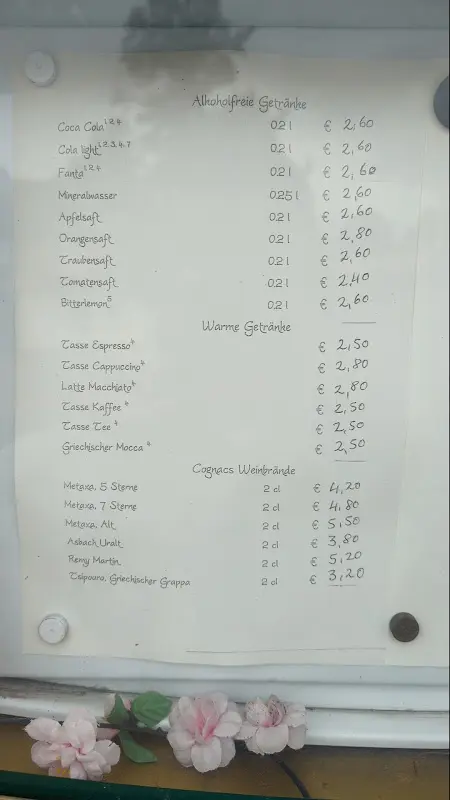 Alkoholfreie Getränke
Coca Cola 1.2.4 0.2 l € 2,60
Cola light 1.2.3.4.7 0.2 l € 2,60
Fanta 1.2.4 0.2 l € 2,60
Mineralwasser 0.25 l € 2,60
Apfelsaft 0.2 l € 2,60
Orangensaft 0.2 l € 2,80
Traubensaft 0.2 l € 2,60
Tomatensaft 0.2 l € 2,40
Bitterlemon 5 0.2 l € 2,60
Warme Getränke
Tasse Espresso 4 € 2,50
Tasse Cappuccino 4 € 2,80
Latte Macchiato 4 € 2,80
Tasse Kaffee 4 € 2,50
Tasse Tee 4 € 2,50
Griechischer Mocca 4 € 2,50
Cognacs Weinbrände
Metaxa, 5 Sterne 2 cl € 4,20
Metaxa, 7 Sterne 2 cl € 4,80
Metaxa, Alt 2 cl € 5,50
Asbach Uralt 2 cl € 3,80
Remy Martin 2 cl € 5,20
Tsipouro, Griechischer Grappa 2 cl € 3,20